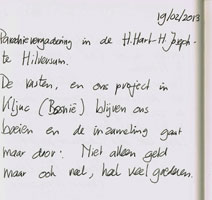 19/02/2013
Parochievergadering in de H. Hart - H. Joseph
te Hilversum.
De vasten, en ons project in
Kljuc (Bosnië) blijven ons
boeien en de inzameling gaat
maar door: Niet alleen geld
maar ook veel, heel veel goederen.